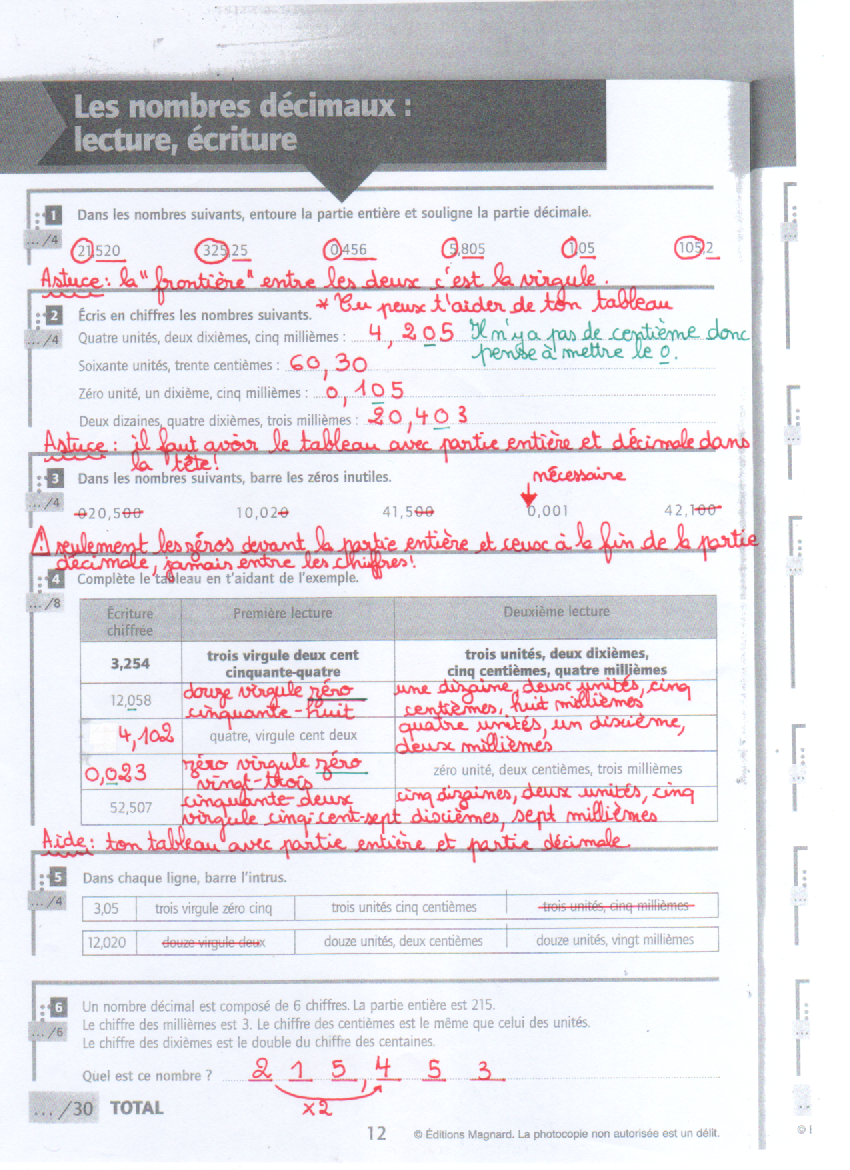 Les nombres décimaux :
lecture, écriture
1 Dans les nombres suivants, entoure la partie entière et souligne la partie décimale.
... /4
21,520 325,25 0,456 5,805 1,05 105,2
Astuce : la "frontière" entre les deux c'est la virgule.
* Tu peux t'aider de ton tableau
2 Écris en chiffres les nombres suivants.
... /4
Quatre unités, deux dixièmes, cinq millièmes : 4,205 Il n'y a pas de centième donc
pense à mettre le 0.
Soixante unités, trente centièmes : 60,30
Zéro unité, un dixième, cinq millièmes : 0,105
Deux dizaines, quatre dixièmes, trois millièmes : 20,403
Astuce : il faut avoir le tableau avec partie entière et décimale dans
la tête!
3 Dans les nombres suivants, barre les zéros inutiles.
nécessaire
... /4
020,500 10,020 41,500 0,001 42,100
⚠ seulement les zéros devant la partie entière et ceux à la fin de la partie
décimale, jamais entre les chiffres!
4 Complète le tableau en t'aidant de l'exemple.
... /8
Écriture chiffrée Première lecture Deuxième lecture
3,254 trois virgule deux cent cinquante-quatre trois unités, deux dixièmes, cinq centièmes, quatre millièmes
12,058 douze virgule zéro cinquante-huit une dizaine, deux unités, cinq centièmes, huit millièmes
4,102 quatre, virgule cent deux quatre unités, un dixième, deux millièmes
0,023 zéro virgule zéro vingt-trois zéro unité, deux centièmes, trois millièmes
52,507 cinquante-deux virgule cinq-cent-sept cinq dizaines, deux unités, cinq dixièmes, sept millièmes
Aide : ton tableau avec partie entière et partie décimale
5 Dans chaque ligne, barre l'intrus.
... /4
3,05 trois virgule zéro cinq trois unités cinq centièmes trois unités, cinq millièmes
12,020 douze virgule deux douze unités, deux centièmes douze unités, vingt millièmes
6 Un nombre décimal est composé de 6 chiffres. La partie entière est 215.
... /6
Le chiffre des millièmes est 3. Le chiffre des centièmes est le même que celui des unités.
Le chiffre des dixièmes est le double du chiffre des centaines.
Quel est ce nombre ? 2 1 5 , 4 5 3
x2
... /30 TOTAL
12 © Éditions Magnard. La photocopie non autorisée est un délit.